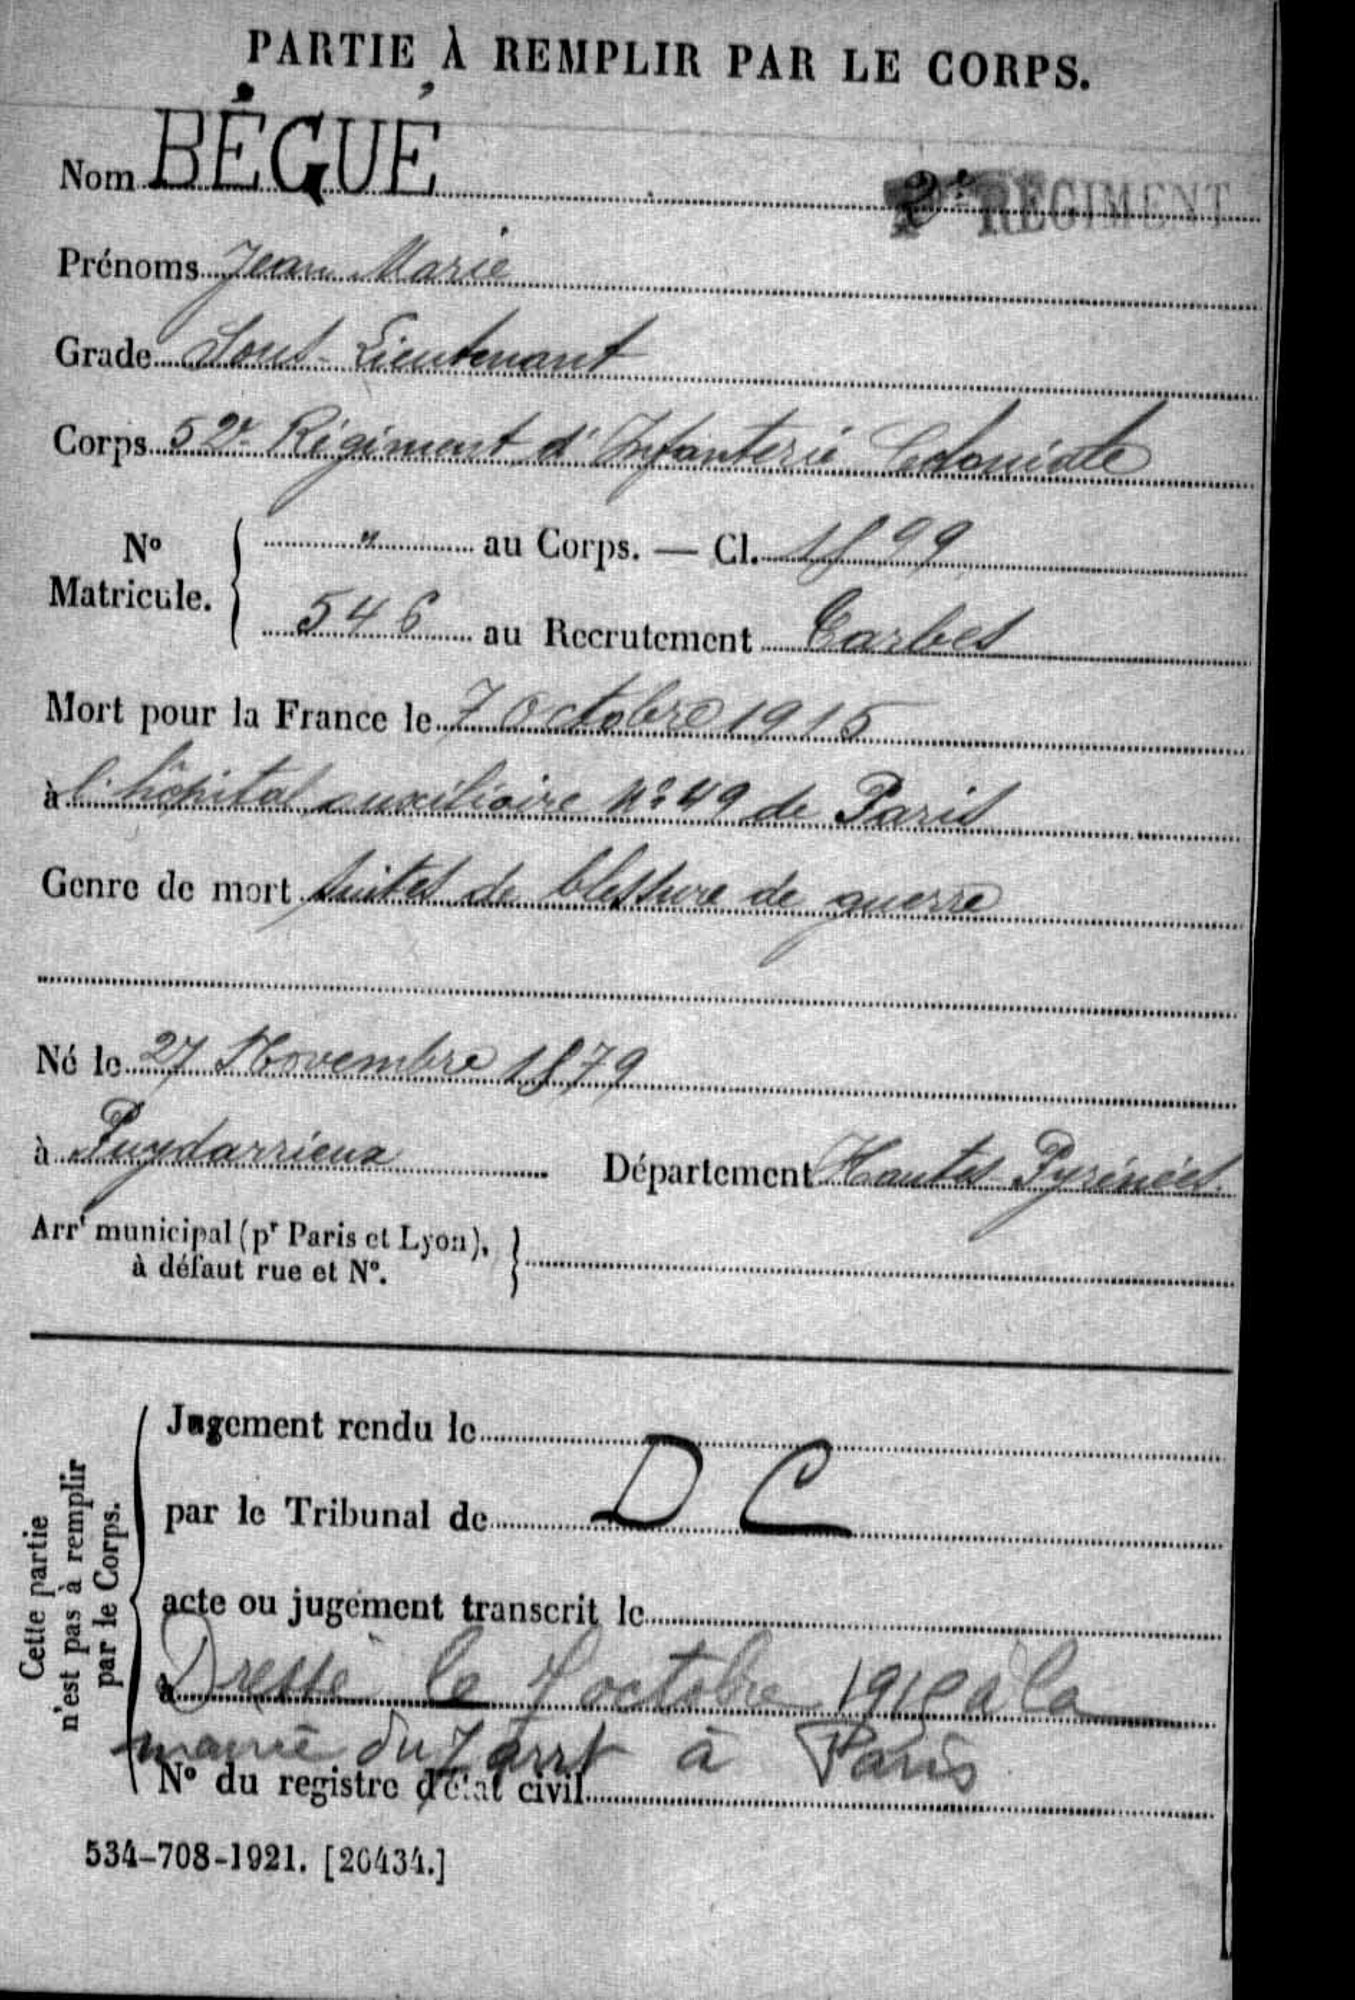 PARTIE À REMPLIR PAR LE CORPS.
Nom BÉGUÉ
2e REGIMENT
Prénoms Jean Marie
Grade Sous-Lieutenant
Corps 52e Régiment d'Infanterie Coloniale
No Matricule. { " au Corps. — Cl. 1899
546 au Recrutement Tarbes
Mort pour la France le 7 Octobre 1915
à l'hôpital auxiliaire No 49 de Paris
Genre de mort suites de blessure de guerre
Né le 27 Novembre 1879
à Puydarrieux Département Hautes-Pyrénées
Arrt municipal (pr Paris et Lyon), à défaut rue et No. }
Cette partie n'est pas à remplir par le Corps.
Jugement rendu le
par le Tribunal de D C
acte ou jugement transcrit le
à Dressé le octobre 1915 à la
mairie du 7 arrt à Paris
No du registre d'état civil
534-708-1921. [20434.]